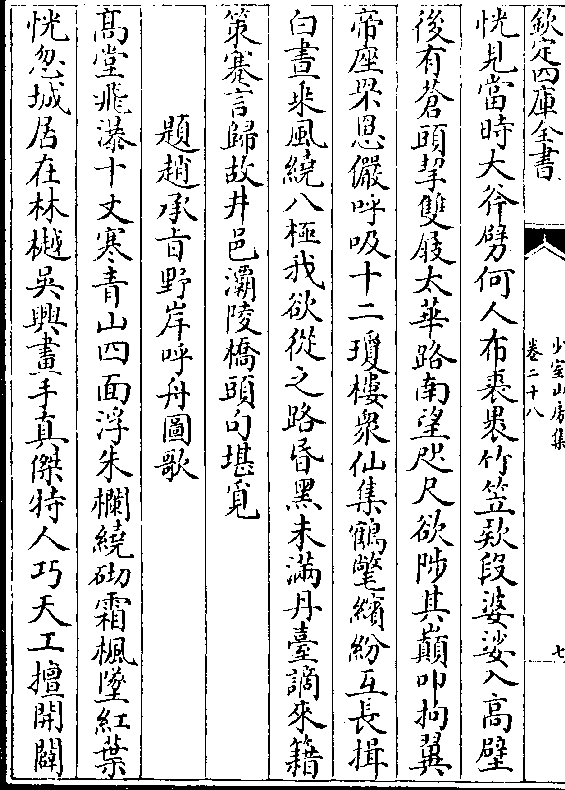 欽定四庫全書
少室山房集
卷二十八
七
恍見當時大斧劈何人布裹褁竹笠欵段婆娑入高壁
後有蒼頭挈雙屐太華路南望咫尺欲陟其巔叩拘翼
帝座罘罳儼呼吸十二瓊樓衆仙集鶴氅繽紛互長揖
白晝乗風繞八極我欲從之路昏黑未滿丹臺謫來籍
策蹇言歸故井邑灞陵橋頭句堪覓
題趙承旨野岸呼舟圖歌
髙堂飛瀑十丈寒青山四面浮朱欄繞砌霜楓墜紅葉
恍忽城居在林樾吳興畫手真傑特人巧天工擅開闢